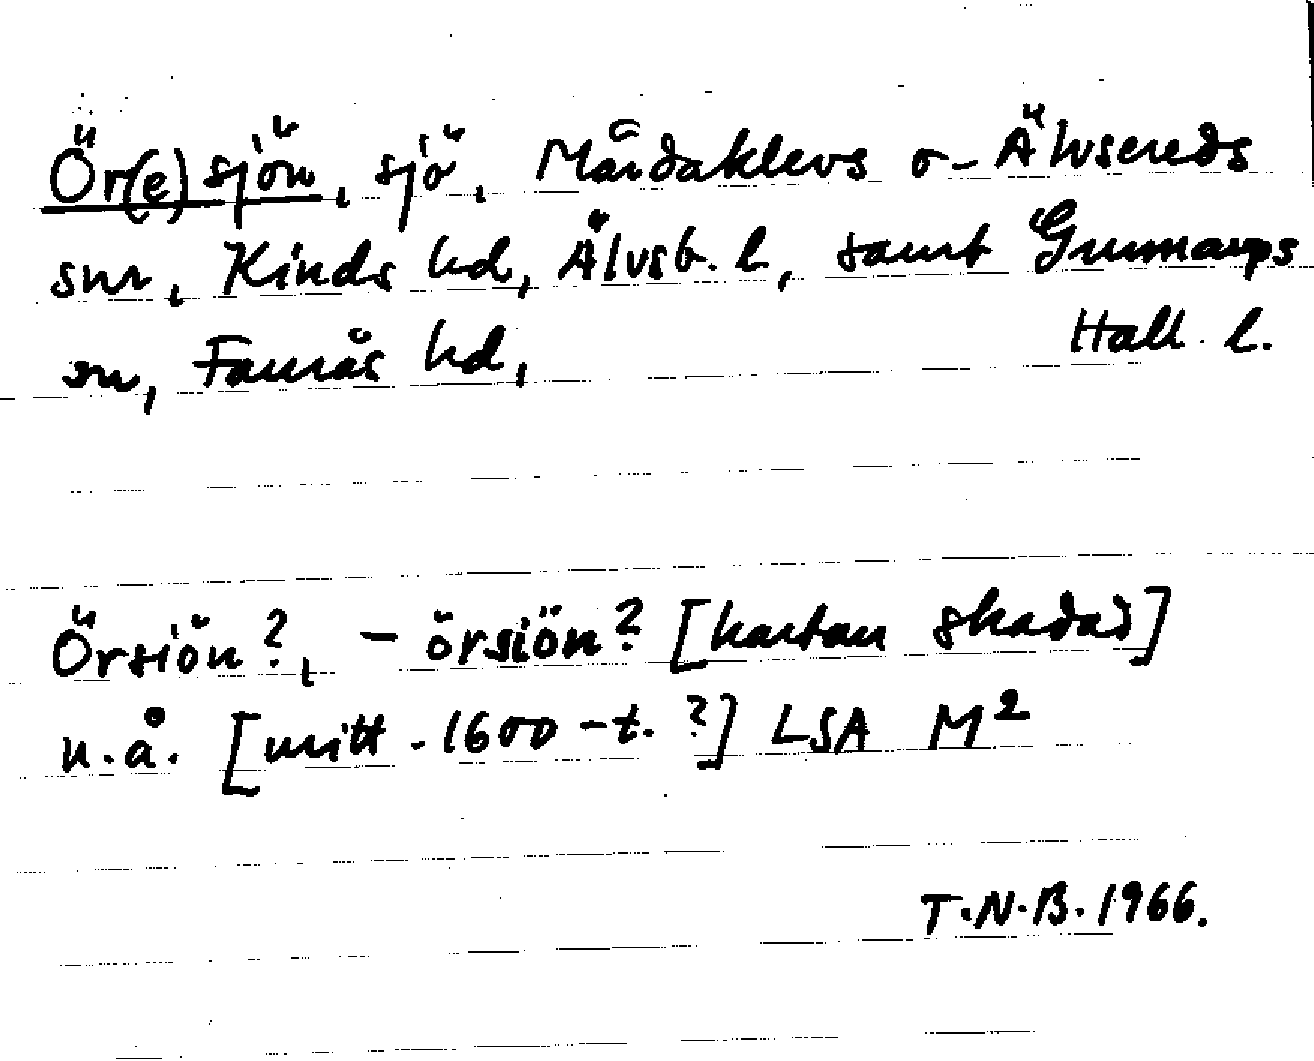 Ör(e)sjön, sjö, Mårdaklevs o- Älvsereds
snr, Kinds hd, Älvsb. l, samt Gunnarps
sn, Faurås hd, Hall. l.
Örsiön?, - örsiön? [kartan skadad]
u.å. [mitt. 1600-t. ?] LSA M2
T.N.B. 1966.